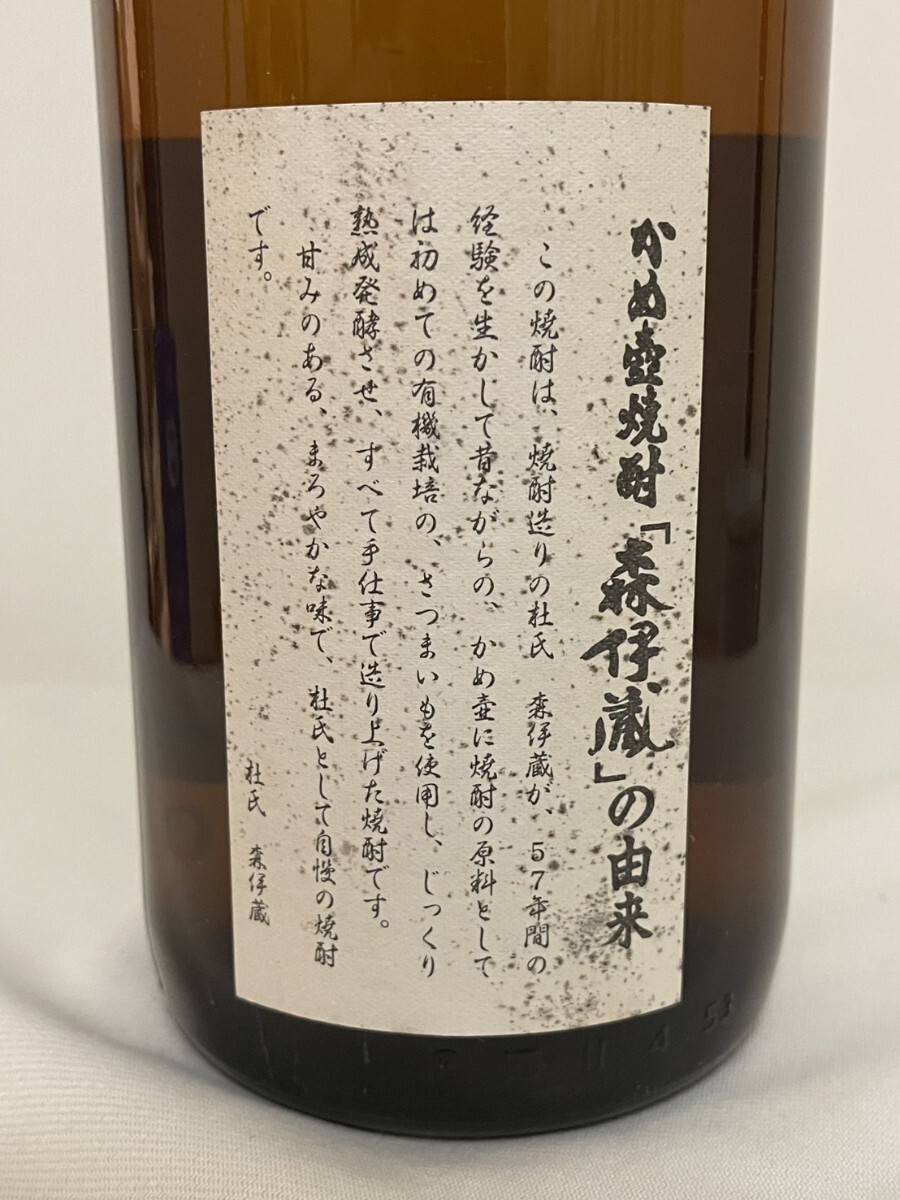 かめ壺焼酎「森伊蔵」の由来
この焼酎は、焼酎造りの杜氏　森伊蔵が、57年間の
経験を生かして昔ながらの、かめ壺に焼酎の原料として
は初めての有機栽培の、さつまいもを使用し、じっくり
熟成発酵させ、すべて手仕事で造り上げた焼酎です。
甘みのある、まろやかな味で、杜氏として自慢の焼酎
です。
杜氏　森伊蔵
11 4 53